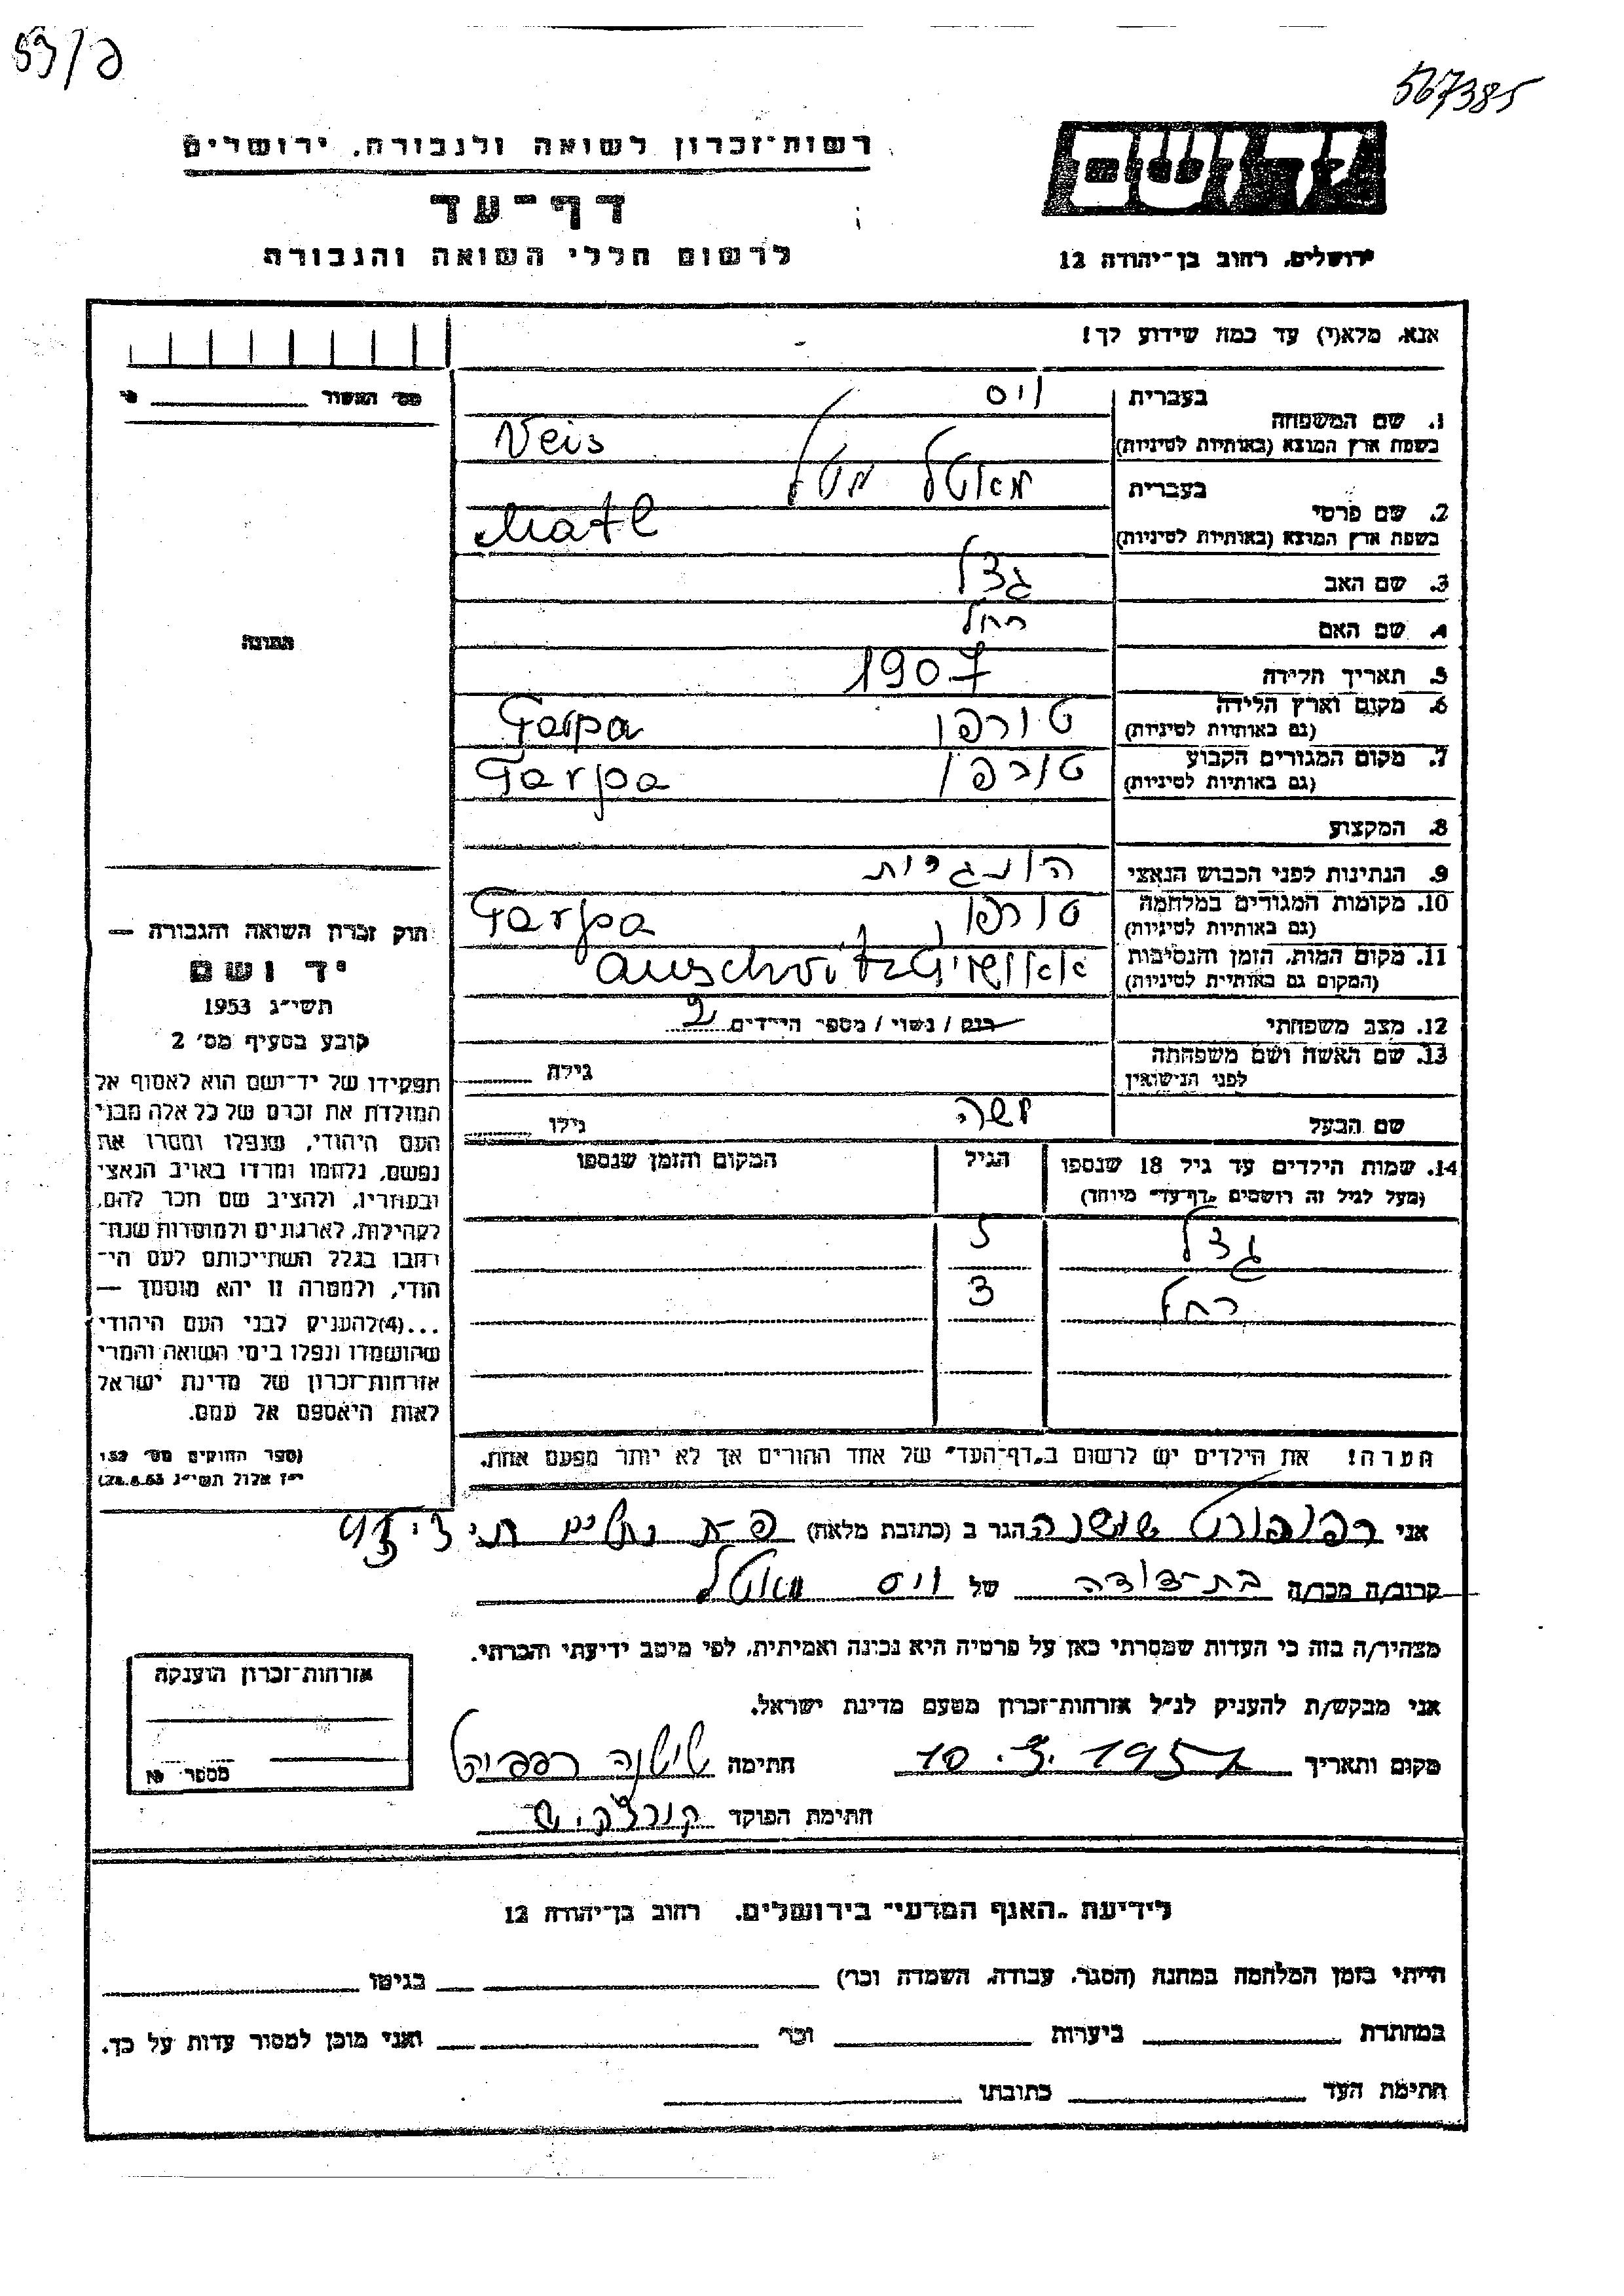 פ/59
567385
יד ושם
רשות־זכרון לשואה ולגבורה, ירושלים
דף־עד
לרשום חללי השואה והגבורה
ירושלים, רחוב בן־יהודה 12
אנא, מלא(י) עד כמה שידוע לך!
מס׳ האשור
1. שם המשפחה
בעברית
ויס
בשפת ארץ המוצא (באותיות לטיניות)
Veis
2. שם פרטי
בעברית
מאטל מטל
בשפת ארץ המוצא (באותיות לטיניות)
Matl
3. שם האב
גצל
4. שם האם
רחל
5. תאריך הלידה
1907
6. מקום וארץ הלידה
(גם באותיות לטיניות)
טורפו Tarpa
7. מקום המגורים הקבוע
(גם באותיות לטיניות)
טורפו Tarpa
8. המקצוע
9. הנתינות לפני הכבוש הנאצי
הונגרית
10. מקומות המגורים במלחמה
(גם באותיות לטיניות)
טורפו, Tarpa
11. מקום המות, הזמן והנסיבות
(המקום גם באותיות לטיניות)
Auschvitz
12. מצב משפחתי
רווק / נשוי / מספר הילדים 2
13. שם האשה ושם משפחתה
לפני הנישואין
גילה
שם הבעל
משה
גילו
14. שמות הילדים עד גיל 18 שנספו
(מעל לגיל זה רושמים „דף־עד״ מיוחד)
הגיל
המקום והזמן שנספו
גצל 5
רחל 3
הערה! את הילדים יש לרשום ב„דף־העד״ של אחד ההורים אך לא יותר מפעם אחת.
תמונה
חוק זכרון השואה והגבורה —
יד ושם
תשי״ג 1953
קובע בסעיף מס׳ 2
תפקידו של יד־ושם הוא לאסוף אל
המולדת את זכרם של כל אלה מבני
העם היהודי, שנפלו ומסרו את
נפשם, נלחמו ומרדו באויב הנאצי
ובעוזריו, ולהציב שם וזכר להם,
לקהילות, לארגונים ולמוסדות שנח־
רבו בגלל השתייכותם לעם הי־
הודי, ולמטרה זו יהא מוסמך —
...(4)להעניק לבני העם היהודי
שהושמדו ונפלו בימי השואה והמרי
אזרחות־זכרון של מדינת ישראל
לאות היאספם אל עמם.
(ספר החוקים מס׳ 132
י״ז אלול תשי״ג 28.8.53)
אני רפופורט שושנה הגר ב (כתובת מלאה)
קרוב/ה מכר/ה בת־דודה של ויס מאטל
מצהיר/ה בזה כי העדות שמסרתי כאן על פרטיה היא נכונה ואמיתית, לפי מיטב ידיעתי והכרתי.
אני מבקש/ת להעניק לנ״ל אזרחות־זכרון מטעם מדינת ישראל.
מקום ותאריך 10.3.1957 חתימה שושנה רפפורט
חתימת הפוקד
אזרחות־זכרון הוענקה
מספר №
לידיעת „האגף המדעי״ בירושלים, רחוב בן־יהודה 12
הייתי בזמן המלחמה במחנה (הסגר, עבודה, השמדה וכו׳) בגיטו
במחתרת ביערות וכו׳ ואני מוכן למסור עדות על כך.
חתימת העד כתובתו